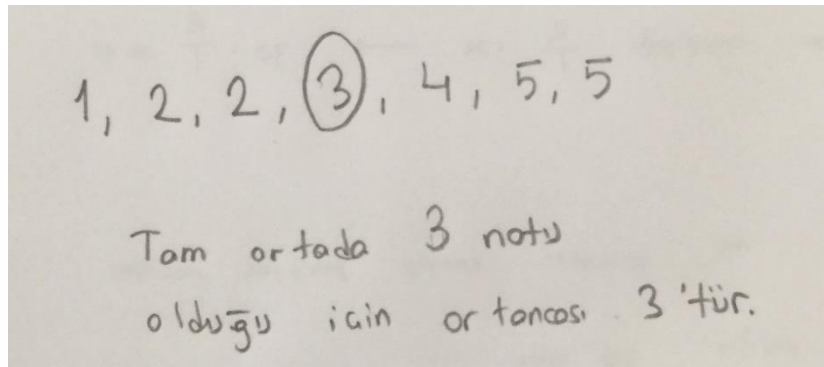 1, 2, 2, 3, 4, 5, 5
Tam ortada 3 notu
olduğu için ortancası 3'tür.